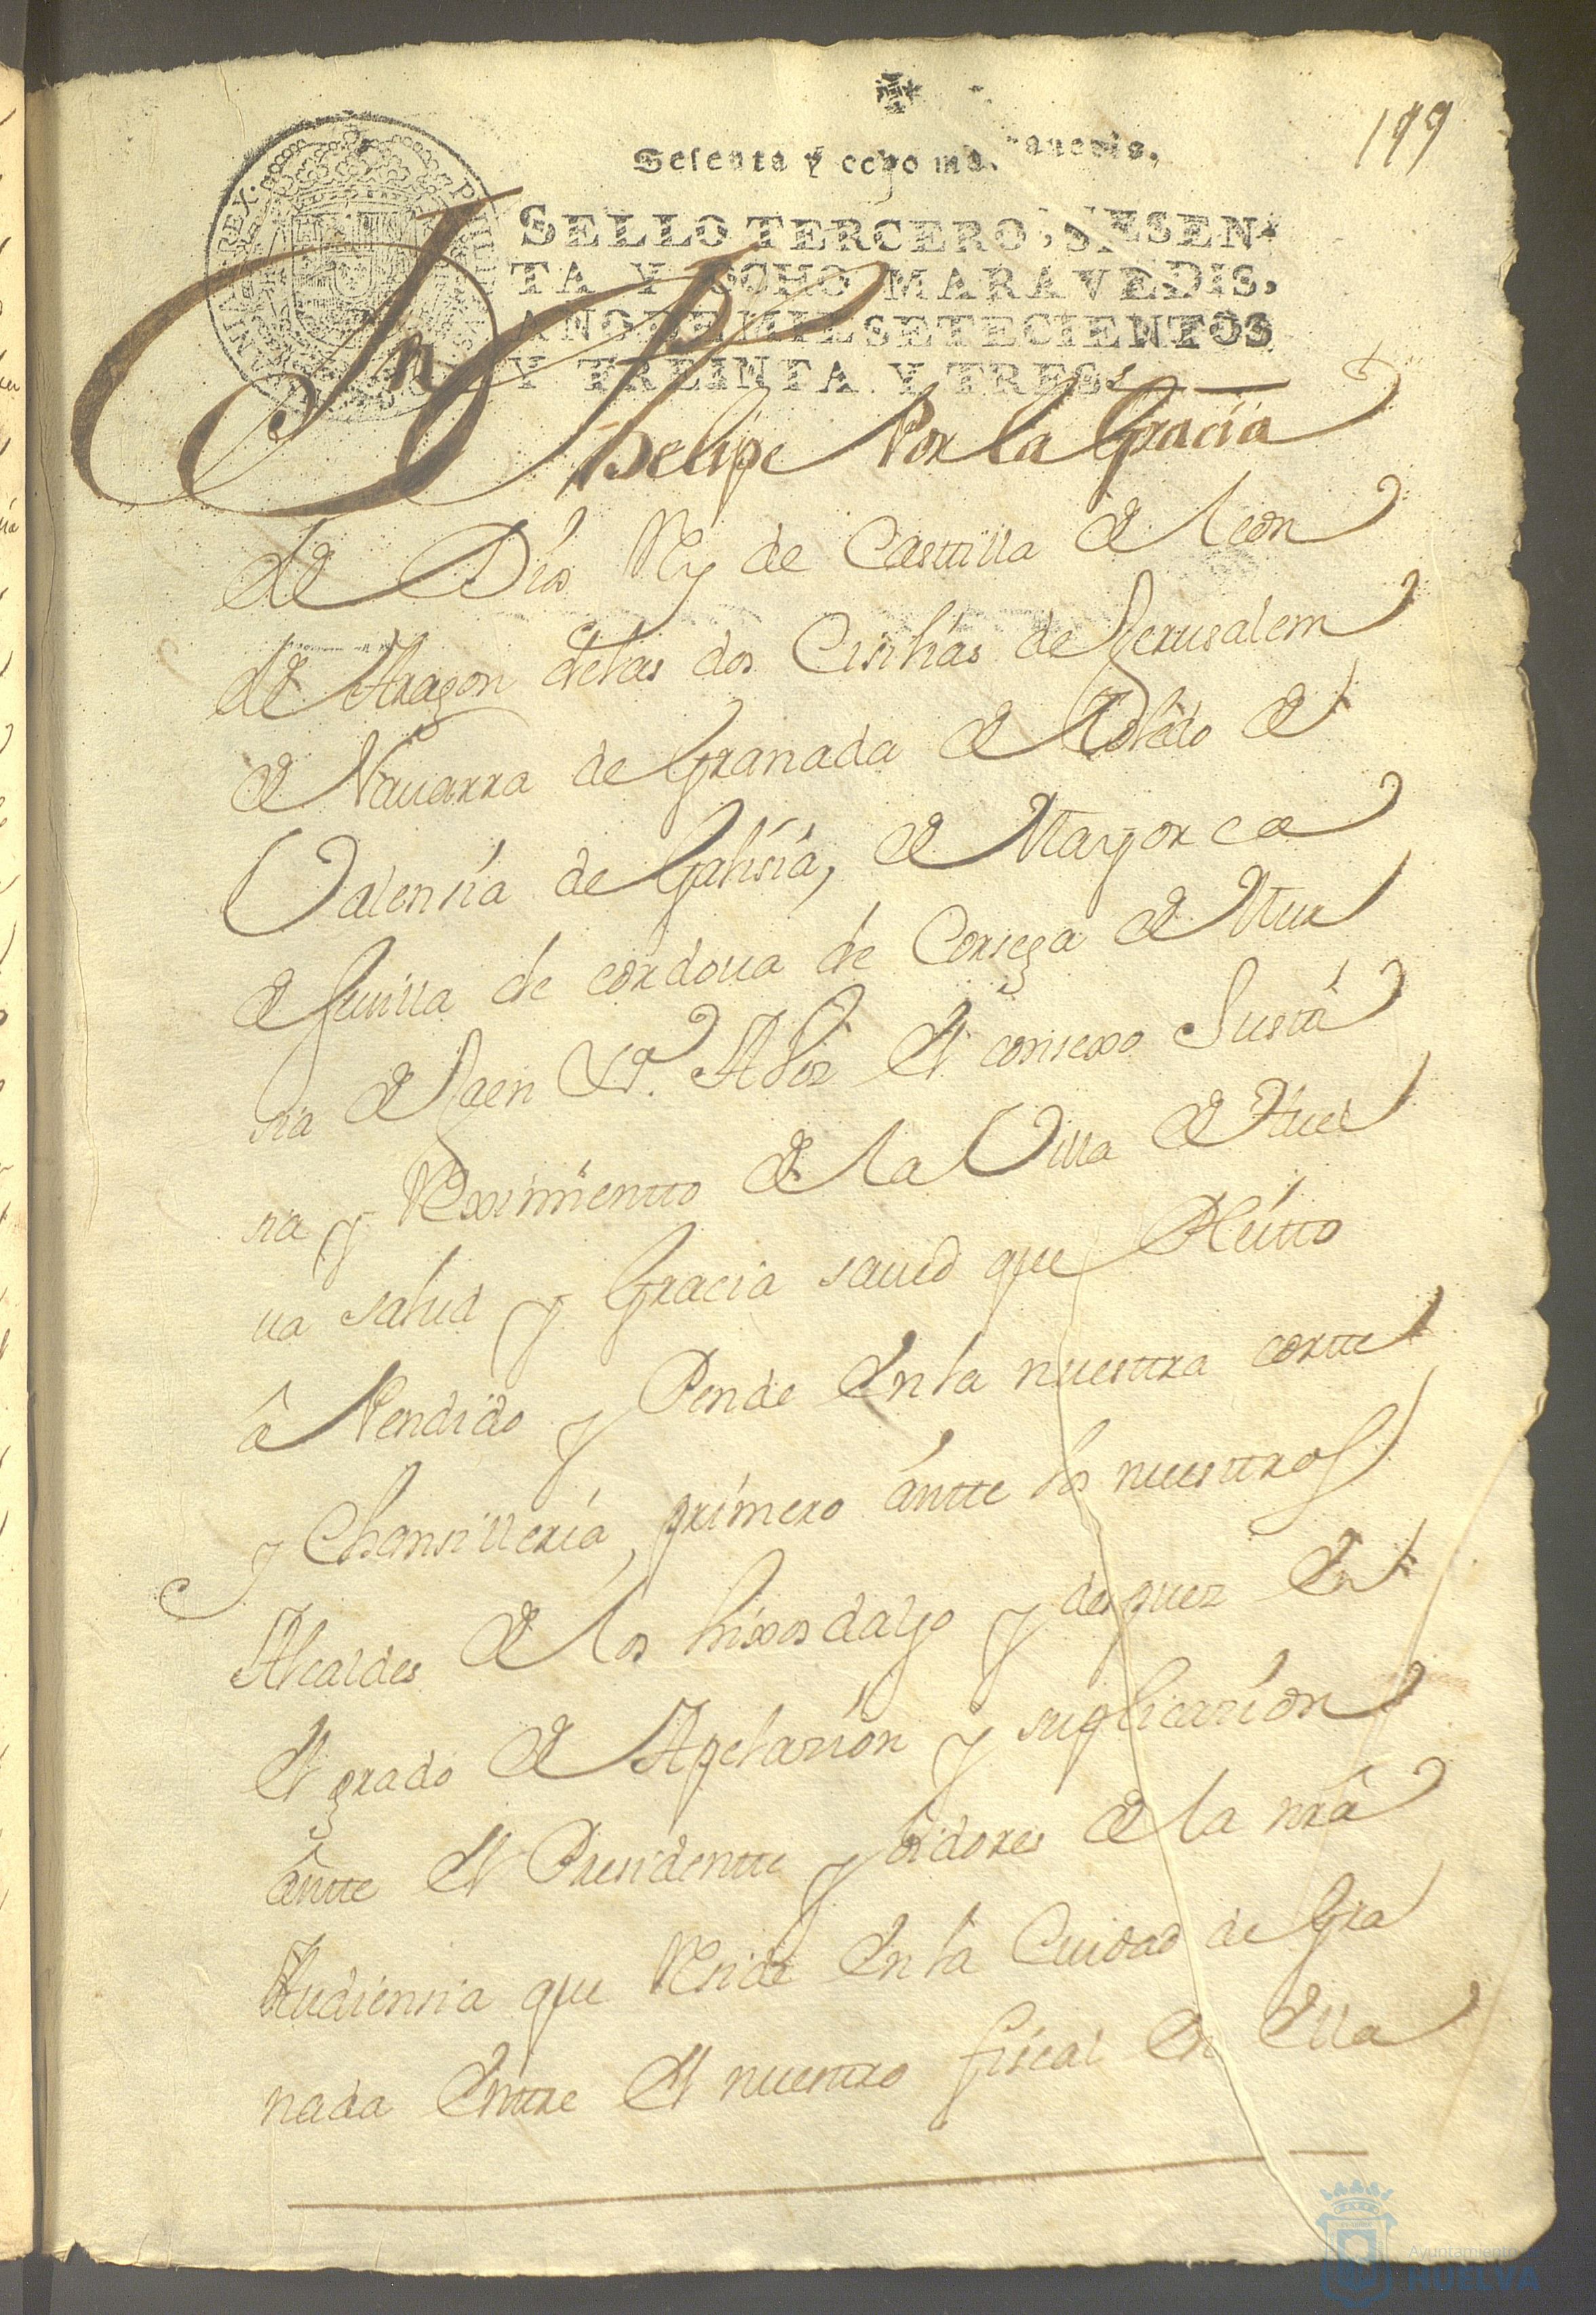 199
Sesenta y ocho maravedis.
SELLO TERCERO, SESEN-
TA Y OCHO MARAVEDIS,
AÑO DE MIL SETECIENTOS
Y TREINTA Y TRES.
Dn Phelipe Por la Gracia
de Dios Rey de Casttilla de leon
de Aragon delas dos Cisilias de Jerusalem
de Nauarra de Granada de Toledo de
Valensia de Galisia, de Mayorca
de Seuilla de cordoua de Corsega de Mur
sia de Jaen &ª. A Vos el consexo Justi
sia y Reximientto de la Villa de Huel
ua salud y Gracia saued que Pleitto
â Pendido y Pende En la nuesttra cortte
y Chansilleria, primero ántte los nuesttros
Alcaldes de los hixosdalgo y despuez En
El grado de Apelasion y suplicasion
ántte El Presidentte y oidores de la nrâ
Audiensia que Reside En la Ciudad de Gra
nada Enttre El nuesttro fiscal En Ella
Ayuntamiento
HUELVA